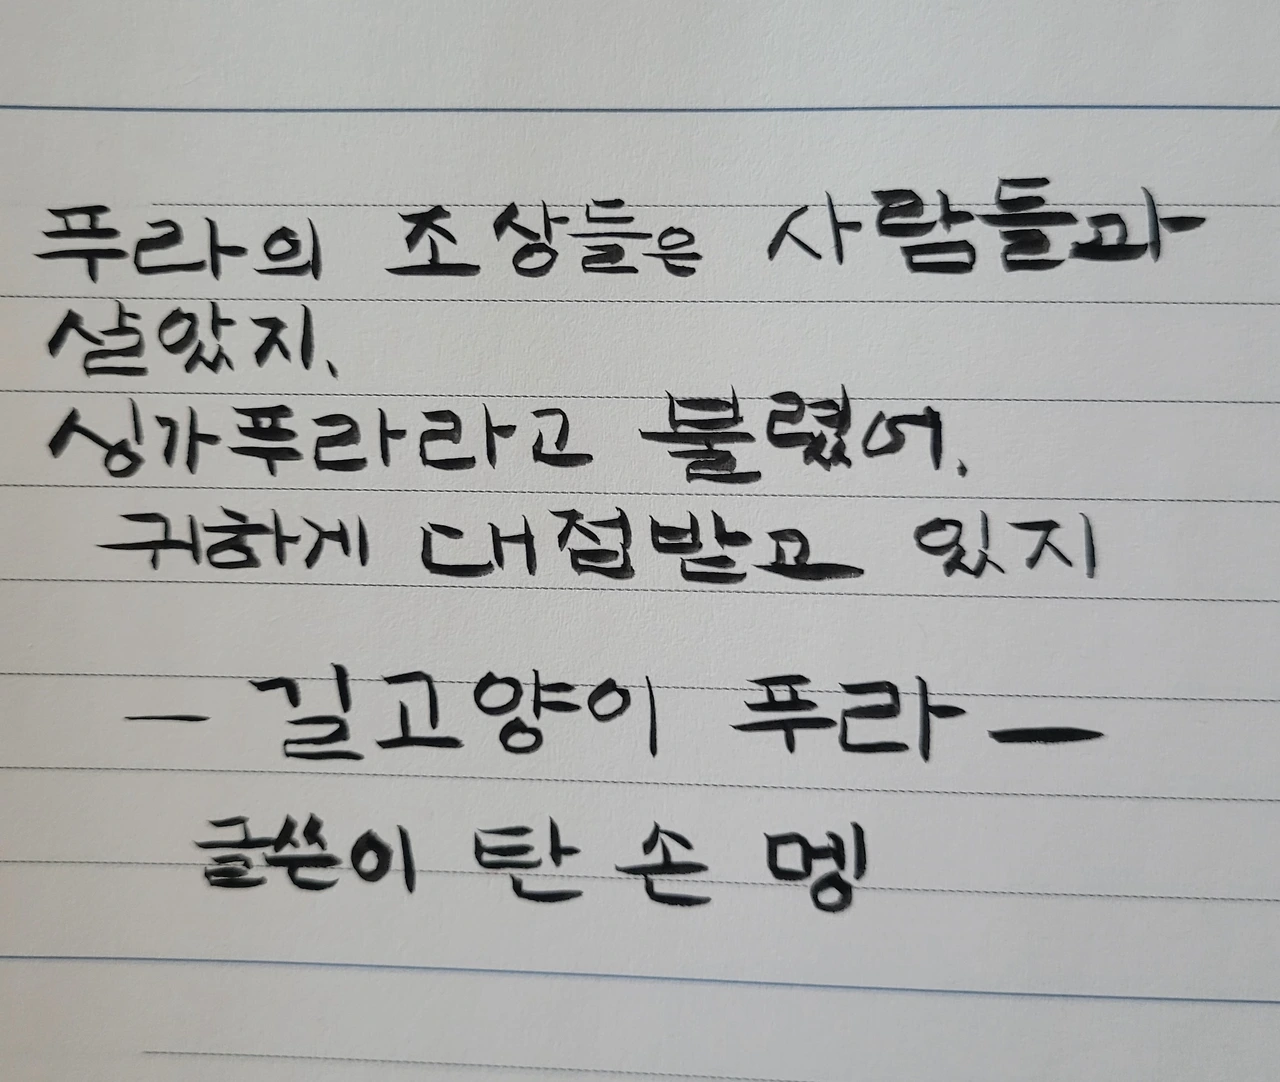 푸라의 조상들은 사람들과
살았지.
싱가푸라라고 불렸어.
귀하게 대접받고 있지
— 길고양이 푸라 —
글쓴이 탄 손 멩